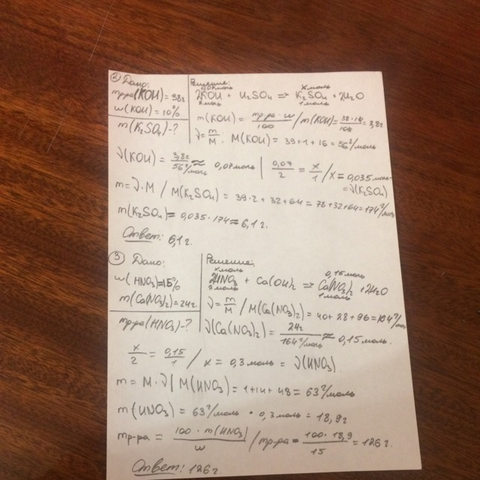 ② Дано:
mр-ра(KOH) = 38г
w(KOH) = 10%
m(K₂SO₄) - ?
Решение:
0,07моль x моль
2KOH + H₂SO₄ ⇒ K₂SO₄ + 2H₂O
2моль 1моль
m(KOH) = mр-ра · w / 100 / m(KOH) = 38 · 10 / 100 = 3,8г
ν = m/M. M(KOH) = 39 + 1 + 16 = 56 г/моль
ν(KOH) = 3,8г / 56 г/моль ≈ 0,07моль | 0,07/2 = x/1 / x = 0,035 моль
= ν(K₂SO₄)
m = ν · M / M(K₂SO₄) = 39·2 + 32 + 64 = 78 + 32 + 64 = 174 г/моль
m(K₂SO₄) = 0,035 · 174 ≈ 6,1 г.
Ответ: 6,1 г.
③ Дано:
w(HNO₃) = 15%
m(Ca(NO₃)₂) = 24г
mр-ра(HNO₃) - ?
Решение:
x моль 0,15моль
2HNO₃ + Ca(OH)₂ ⇒ Ca(NO₃)₂ + 2H₂O
2моль 1моль
ν = m/M / M(Ca(NO₃)₂) = 40 + 28 + 96 = 164 г/моль
ν(Ca(NO₃)₂) = 24г / 164 г/моль ≈ 0,15 моль.
x/2 = 0,15/1 / x = 0,3 моль = ν(HNO₃)
m = M · ν / M(HNO₃) = 1 + 14 + 48 = 63 г/моль
m(HNO₃) = 63 г/моль · 0,3 моль = 18,9г
mр-ра = 100 · m(HNO₃) / w / mр-ра = 100 · 18,9 / 15 = 126 г.
Ответ: 126 г.